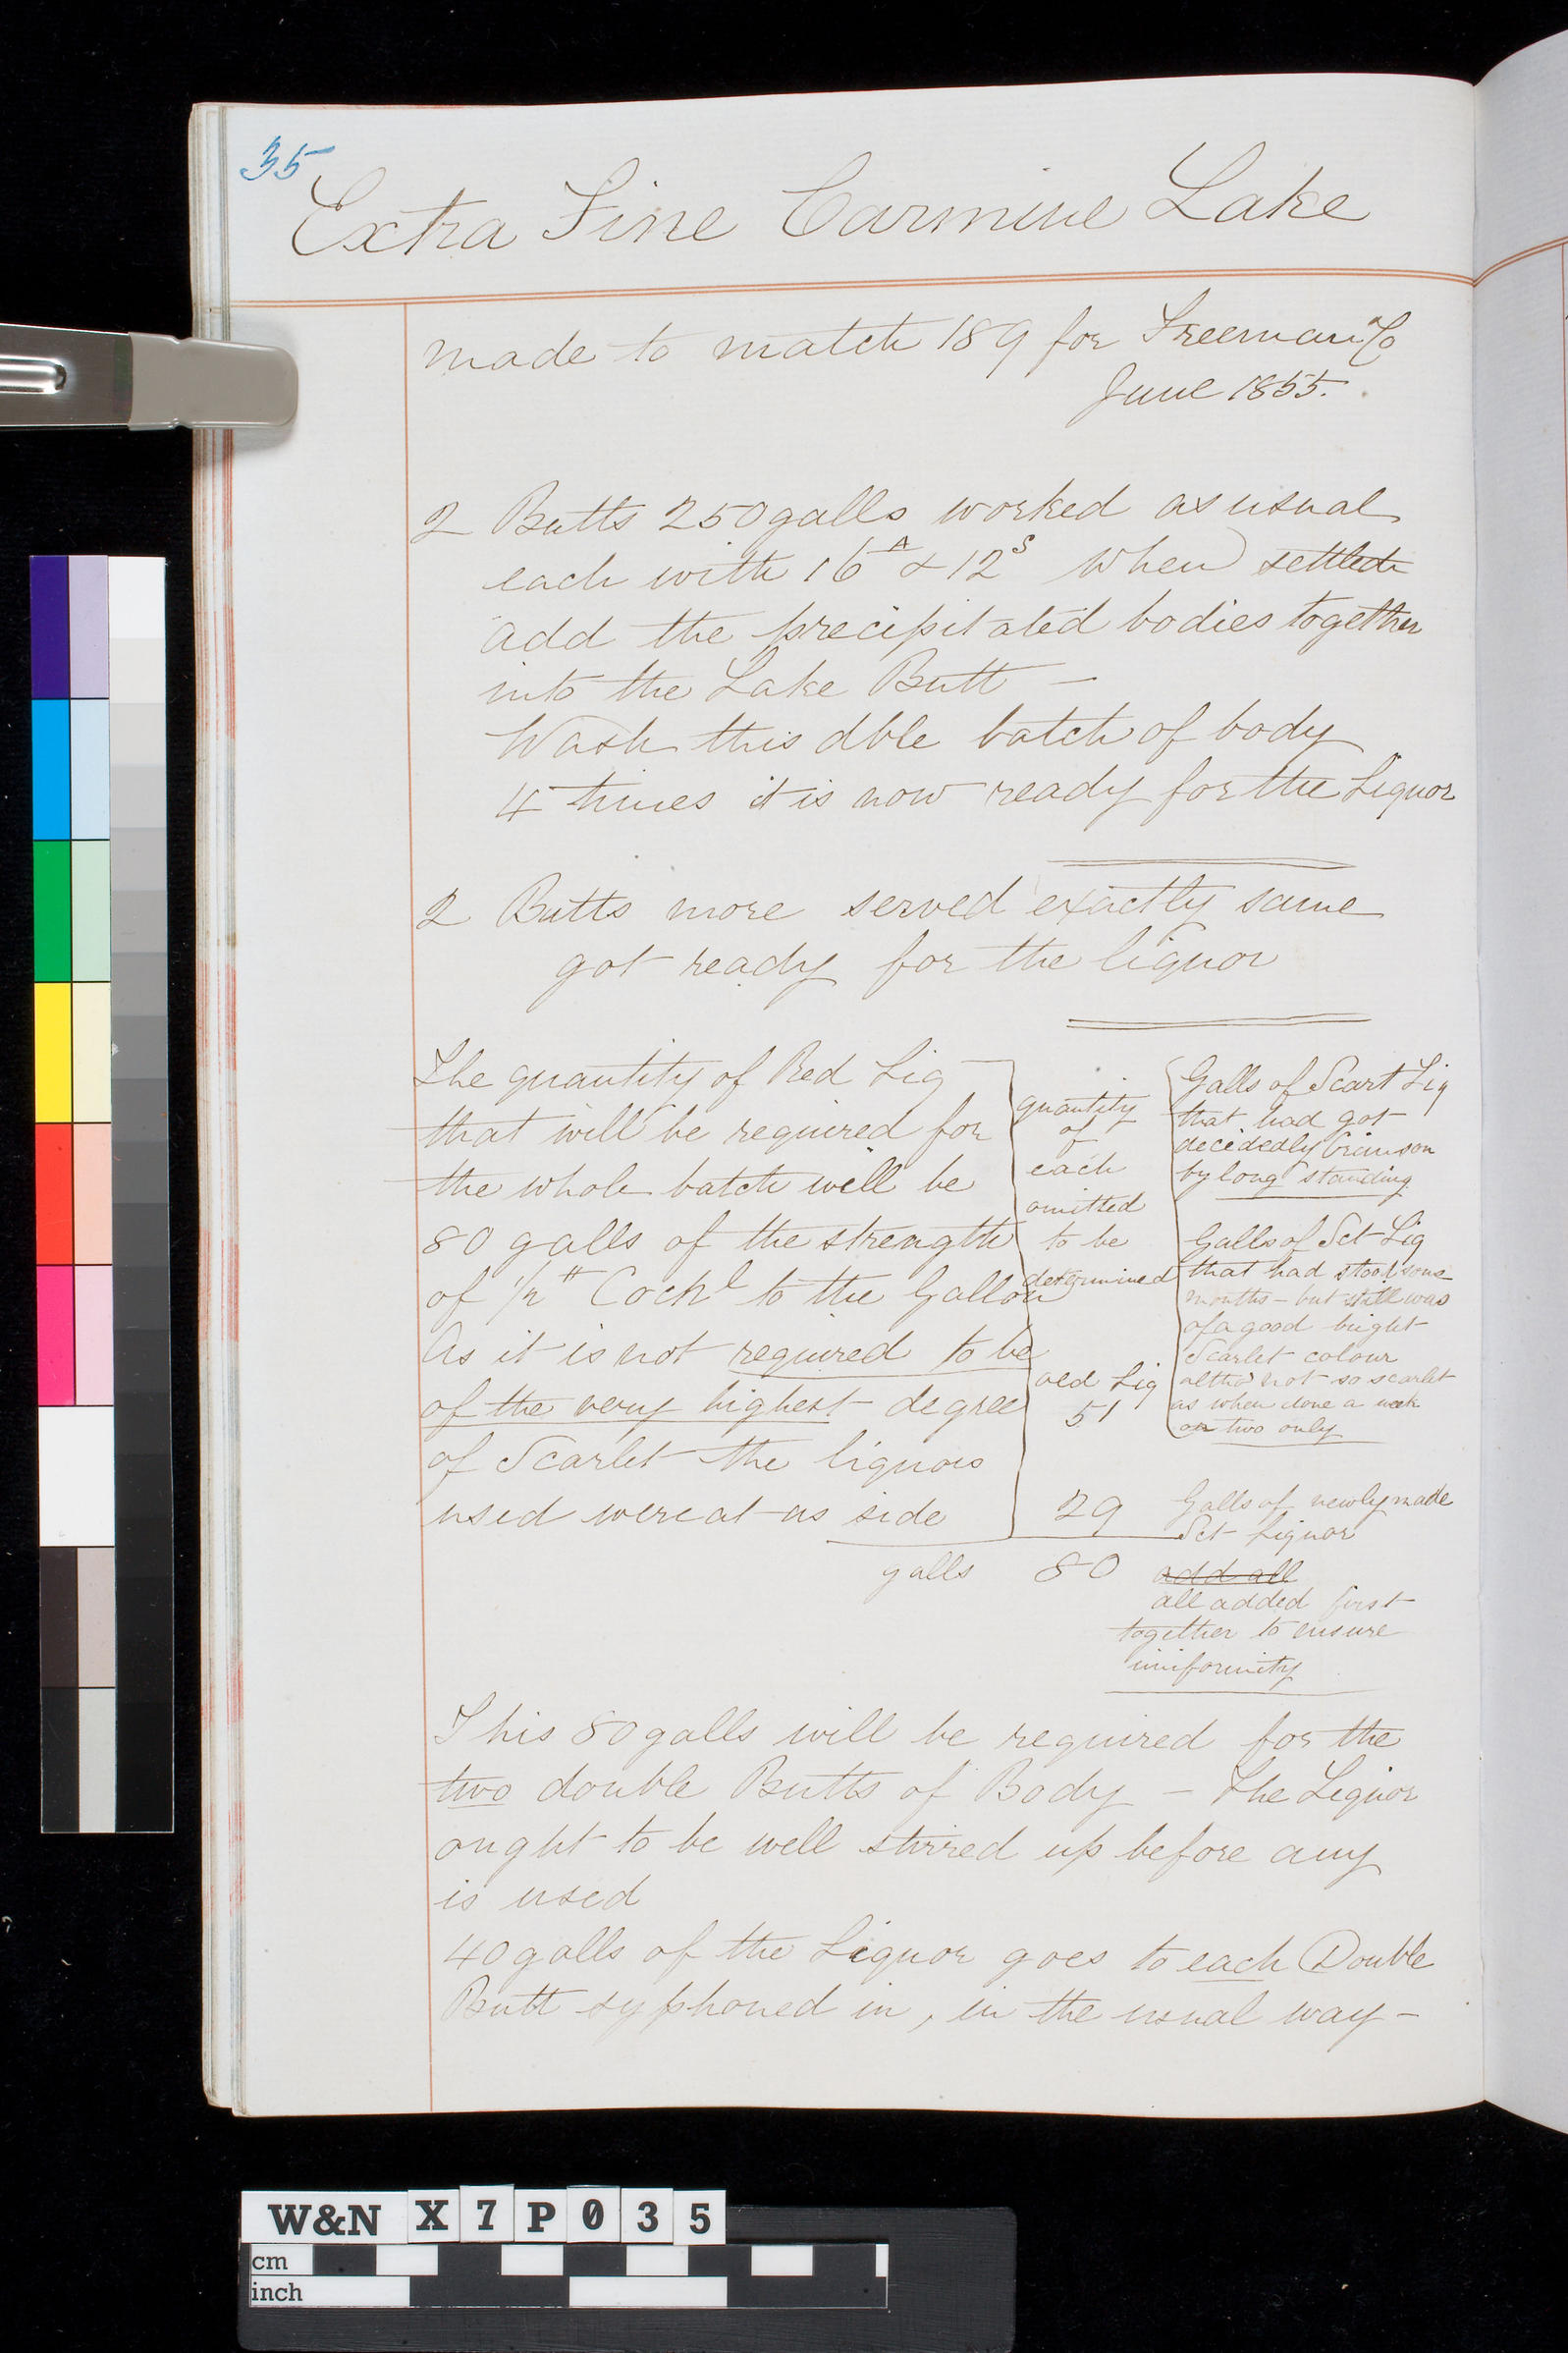 35
Extra Fine Carmine Lake
made to match 189 for Freeman & Co
June 1855.
2 Butts 250 galls worked as usual
each with 16 A & 12 S when settled
add the precipitated bodies together
into the Lake Butt —
Wash this dble batch of body
4 times it is now ready for the Liquor
2 Butts more served exactly same
got ready for the liquor
The quantity of Red Liq
that will be required for
the whole batch will be
80 galls of the strength
of 1/2 lb Cochl to the Gallon
As it is not required to be
of the very highest degree
of Scarlet the liquors
used were at as side
quantity
of
each
omitted
to be
determined
old Liq
51
29
galls 80
Galls of Scart Liq
that had got
decidedly Crimson
by long standing
Galls of Sct Liq
that had stood some
months - but still was
of a good bright
Scarlet colour
altho not so scarlet
as when done a week
or two only
Galls of newly made
Sct Liquor
add all
all added first
together to ensure
uniformity
This 80 galls will be required for the
two double Butts of Body - The Liquor
ought to be well stirred up before any
is used
40 galls of the Liquor goes to each Double
Butt syphoned in, in the usual way -
W&N X7P035
cm
inch